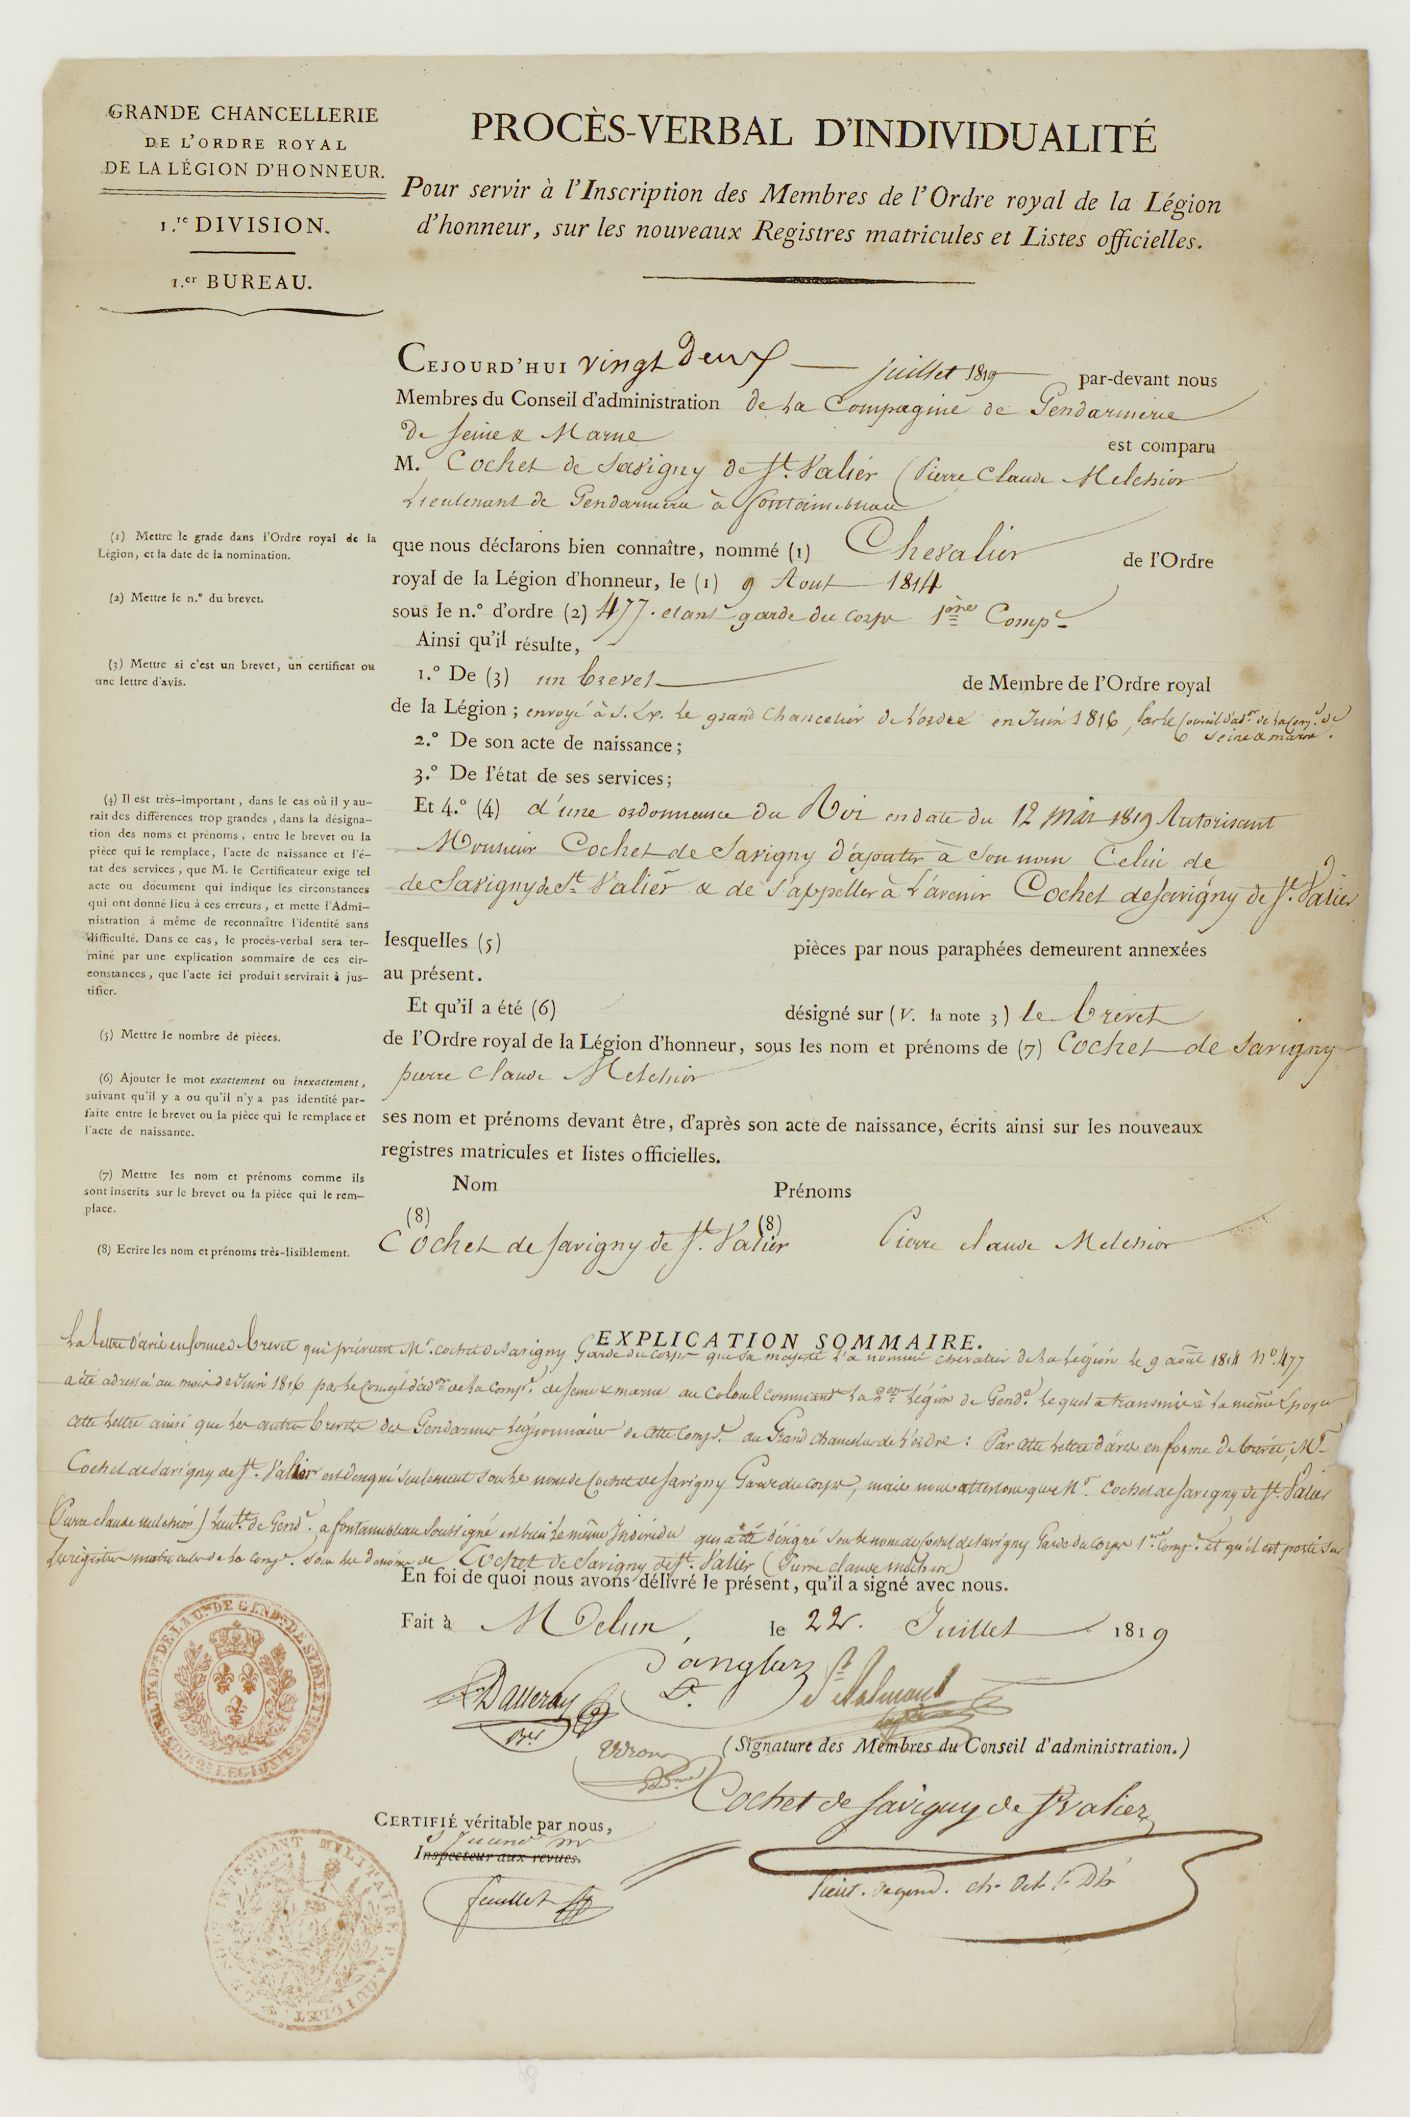 GRANDE CHANCELLERIE
DE L'ORDRE ROYAL
DE LA LÉGION D'HONNEUR.
1.re DIVISION.
1.er BUREAU.
PROCÈS-VERBAL D'INDIVIDUALITÉ
Pour servir à l'Inscription des Membres de l'Ordre royal de la Légion
d'honneur, sur les nouveaux Registres matricules et Listes officielles.
CEJOURD'HUI vingt deux juillet 1819 par-devant nous
Membres du Conseil d'administration de la Compagnie de Gendarmerie
de Seine & Marne est comparu
M. Cochet de Savigny de St. Valier (Pierre Claude Melchior
Lieutenant de Gendarmerie à fontainebleau
(1) Mettre le grade dans l'Ordre royal de la
Légion, et la date de la nomination.
que nous déclarons bien connaître, nommé (1) Chevalier de l'Ordre
royal de la Légion d'honneur, le (1) 9 Aout 1814
(2) Mettre le n.° du brevet.
sous le n.° d'ordre (2) 477. etant garde du corps 1ère Comp.e
Ainsi qu'il résulte,
(3) Mettre si c'est un brevet, un certificat ou
une lettre d'avis.
1.° De (3) un brevet de Membre de l'Ordre royal
de la Légion; envoyé à S. Ex. le grand Chancelier de l'ordre en Juin 1816, par le Conseil d'ad.on de la Comp.e de
Seine & marne.
2.° De son acte de naissance;
3.° De l'état de ses services;
(4) Il est très-important, dans le cas où il y au-
rait des différences trop grandes, dans la désigna-
tion des noms et prénoms, entre le brevet ou la
pièce qui le remplace, l'acte de naissance et l'é-
tat des services, que M. le Certificateur exige tel
acte ou document qui indique les circonstances
qui ont donné lieu à ces erreurs, et mette l'Admi-
nistration à même de reconnaître l'identité sans
difficulté. Dans ce cas, le procès-verbal sera ter-
miné par une explication sommaire de ces cir-
constances, que l'acte ici produit servirait à jus-
tifier.
Et 4.° (4) d'une ordonnance du Roi en date du 12 mai 1819 Autorisant
Monsieur Cochet de Savigny d'ajouter à son nom Celui de
de Savigny de St Valier & de s'appeller à l'avenir Cochet de Savigny de St. Valier
lesquelles (5) pièces par nous paraphées demeurent annexées
au présent.
(5) Mettre le nombre de pièces.
Et qu'il a été (6) désigné sur (V. la note 3) le brevet
de l'Ordre royal de la Légion d'honneur, sous les nom et prénoms de (7) Cochet de Savigny
pierre Claude Melchior
(6) Ajouter le mot exactement ou inexactement,
suivant qu'il y a ou qu'il n'y a pas identité par-
faite entre le brevet ou la pièce qui le remplace et
l'acte de naissance.
ses nom et prénoms devant être, d'après son acte de naissance, écrits ainsi sur les nouveaux
registres matricules et listes officielles.
(7) Mettre les nom et prénoms comme ils
sont inscrits sur le brevet ou la pièce qui le rem-
place.
Nom Prénoms
(8) (8)
(8) Ecrire les nom et prénoms très-lisiblement.
Cochet de Savigny de St. Valier Pierre claude Melchior
EXPLICATION SOMMAIRE.
La lettre d'avis en forme de brevet qui prévient Mr. Cochet de Savigny Garde du corps que sa majesté l'a nommé chevalier de la Légion le 9 août 1814 No. 477
a été adressé au mois de Juin 1816 par le Conseil d'ad.on de la Comp.e de Seine & marne au Colonel Command.t la 2.me Légion de Gend.e lequel a transmis à la même Epoque
cette lettre ainsi que les autres brevets des Gendarmes Légionnaires de cette Comp.e au Grand Chancelier de l'ordre: Par cette lettre d'avis en forme de brevet, Mr
Cochet de Savigny de St. Valier est désigné seulement sous le nom de Cochet de Savigny Garde du Corps, mais nous attestons que Mr. Cochet de Savigny de St. Valier
(Pierre claude melchior) Lieut.t de Gend.e a fontainebleau soussigné est bien le même Individu qui a été désigné sous le nom de Cochet de Savigny Garde du Corps 1.re Comp.e et qu'il est porté sur
les registres matricules de la Comp.e sous les noms de Cochet de Savigny de St. Valier (Pierre claude melchior)
En foi de quoi nous avons délivré le présent, qu'il a signé avec nous.
Fait à Melun, le 22. Juillet 1819
Danglars
(Signature des Membres du Conseil d'administration.)
Cochet de Savigny de St valier
CERTIFIÉ véritable par nous,
Inspecteur aux revues.
feuillet